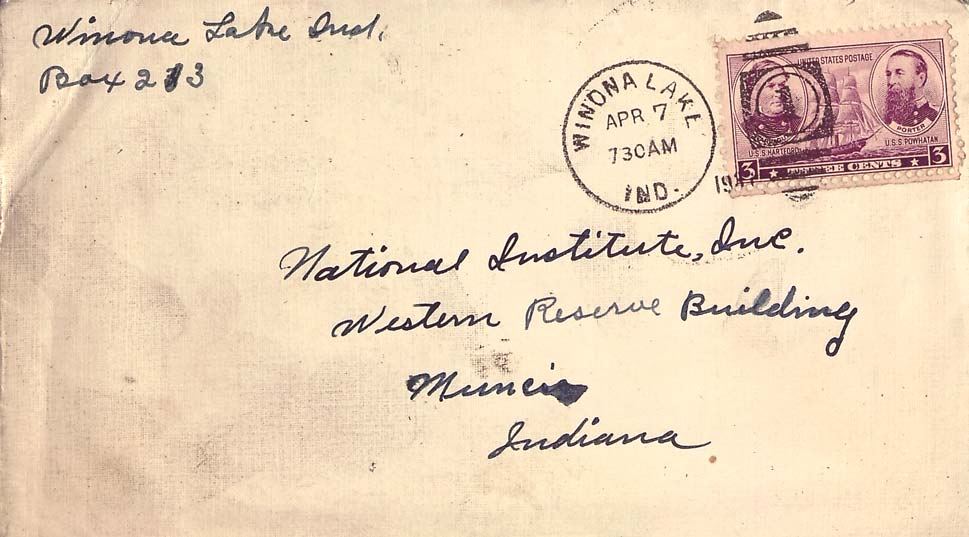 Winona Lake Ind.
Box 213
WINONA LAKE
APR 7
730AM
IND.
UNITED STATES POSTAGE
PORTER
U.S.S. HARTFORD
U.S.S. POWHATAN
3 THREE CENTS 3
National Institute, Inc.
Western Reserve Building
Muncie
Indiana